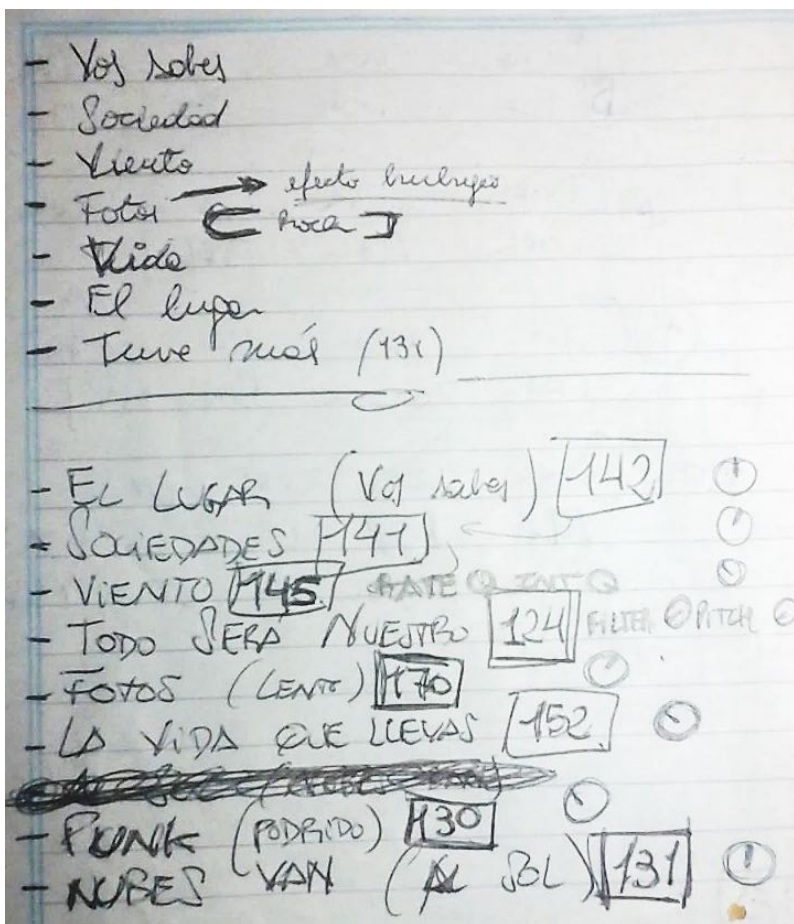 - Vos sabes
- Sociedad
- Viento
- Fotos → efecto burbujeo
[ Roca ]
- Vida
- El lugar
- Tuve más (131)
- EL LUGAR (Vos sabes) 142
- SOCIEDADES 141
- VIENTO 145 RATE INT
- TODO SERÁ NUESTRO 124 FILTER PITCH
- FOTOS (LENTO) 170
- LA VIDA QUE LLEVAS 152
- PUNK (PODRIDO) 130
- NUBES VAN (AL SOL) 131